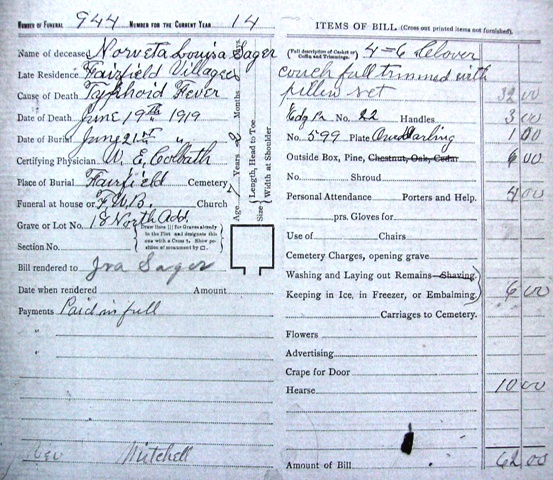 NUMBER OF FUNERAL 944 NUMBER FOR THE CURRENT YEAR 14
Name of deceased Norveta Louisa Sager
Late Residence Fairfield Village
Cause of Death Typhoid Fever
Date of Death June 19th 1919
Date of Burial June 21st "
Certifying Physician W. E. Colbath
Place of Burial Fairfield Cemetery
Funeral at house or F.W.B. Church
Grave or Lot No. 18 North Add.
Section No.
Draw lines for Graves already in the Plot and designate this one with a Cross †. Show position of monument by □.
Age Years Months
Size Length, Head to Toe
Width at Shoulder
Bill rendered to Ira Sager
Date when rendered Amount
Payments Paid in full
"
"
Geo Mitchell
ITEMS OF BILL (Cross out printed items not furnished).
(Full description of Casket or Coffin and Trimmings. 4=6
couch full trimmed with
pillow set 32 00
No. 22 Handles 3 00
No. 599 Plate Our Darling 1 00
Outside Box, Pine, Chestnut, Oak, Cedar 6 00
No. Shroud
Personal Attendance Porters and Help. 4 00
prs. Gloves for
Use of Chairs
Cemetery Charges, opening grave
Washing and Laying out Remains Shaving
Keeping in Ice, in Freezer, or Embalming, 6 00
Carriages to Cemetery.
Flowers
Advertising
Crape for Door
Hearse 10 00
Amount of Bill 62.00